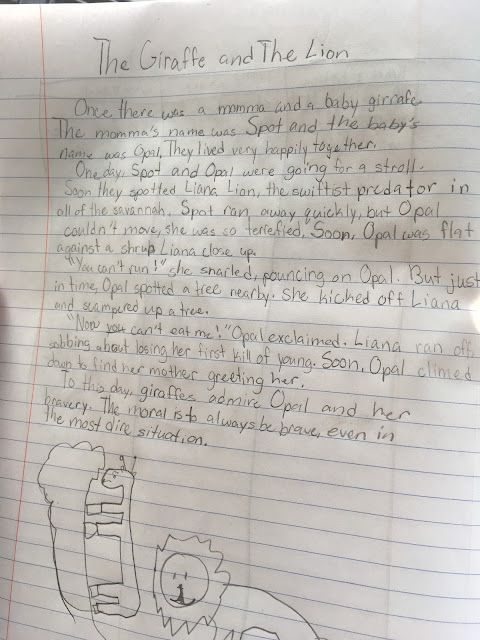 The Giraffe and The Lion
Once there was a momma and a baby girrafe.
The momma's name was Spot and the baby's
name was Opal. They lived very happily together.
One day, Spot and Opal were going for a stroll.
Soon they spotted Liana Lion, the swiftist predator in
all of the savannah. Spot ran away quickly, but Opal
couldn't move, she was so terrefied. Soon, Opal was flat
against a shrup, Liana close up.
"You can't run!" she snarled, pouncing on Opal. But just
in time, Opal spotted a tree nearby. She kicked off Liana
and scampered up a tree.
"Now you can't eat me!" Opal exclaimed. Liana ran off,
sobbing about losing her first kill of young. Soon, Opal climed
down to find her mother greeting her.
To this day, giraffes admire Opal and her
bravery. The moral is to always be brave, even in
the most dire situation.